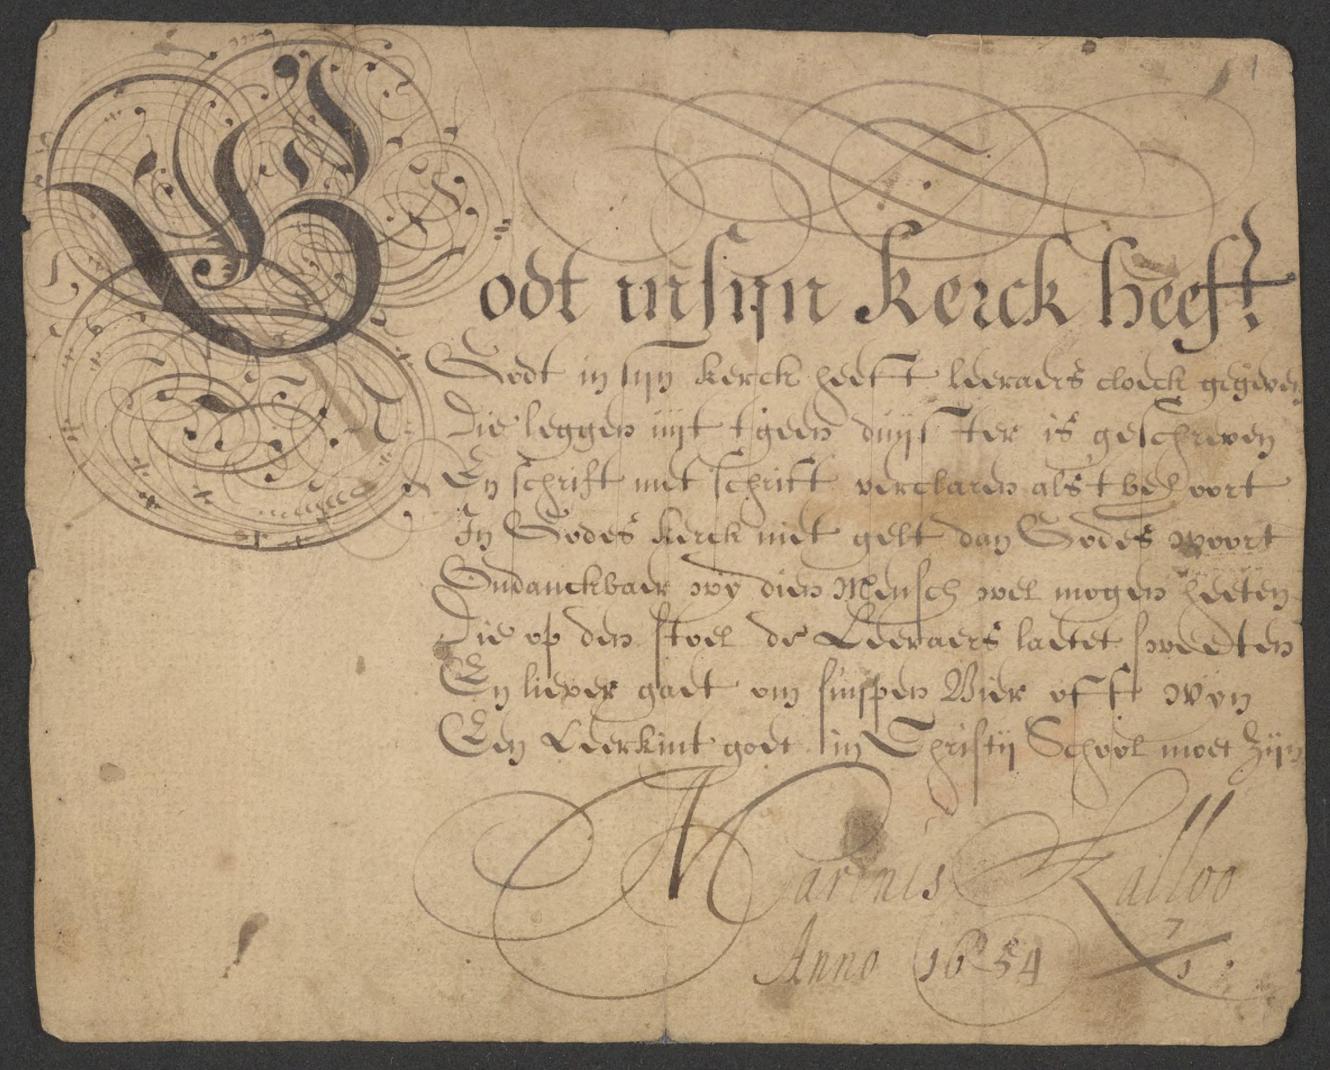 Godt in sijn kerck heeft
Godt in sijn kerck heeft leeraers cloeck gegeven
Die leggen uijt tgeen duijster is geschreven
En schrift met schrift verclaren als t behoort
In Godes kerck niet gelt dan Godes woort
Ondanckbaer wy dien Mensch wel mogen heeten
Die op den stoel de Leeraers laetet sweeten
En liever gaet om suijpen Bier offt Wyn
Een Leerkint godt in Christij School moet Zijn
Marinis Kalloo
Anno 1654 7/1
1